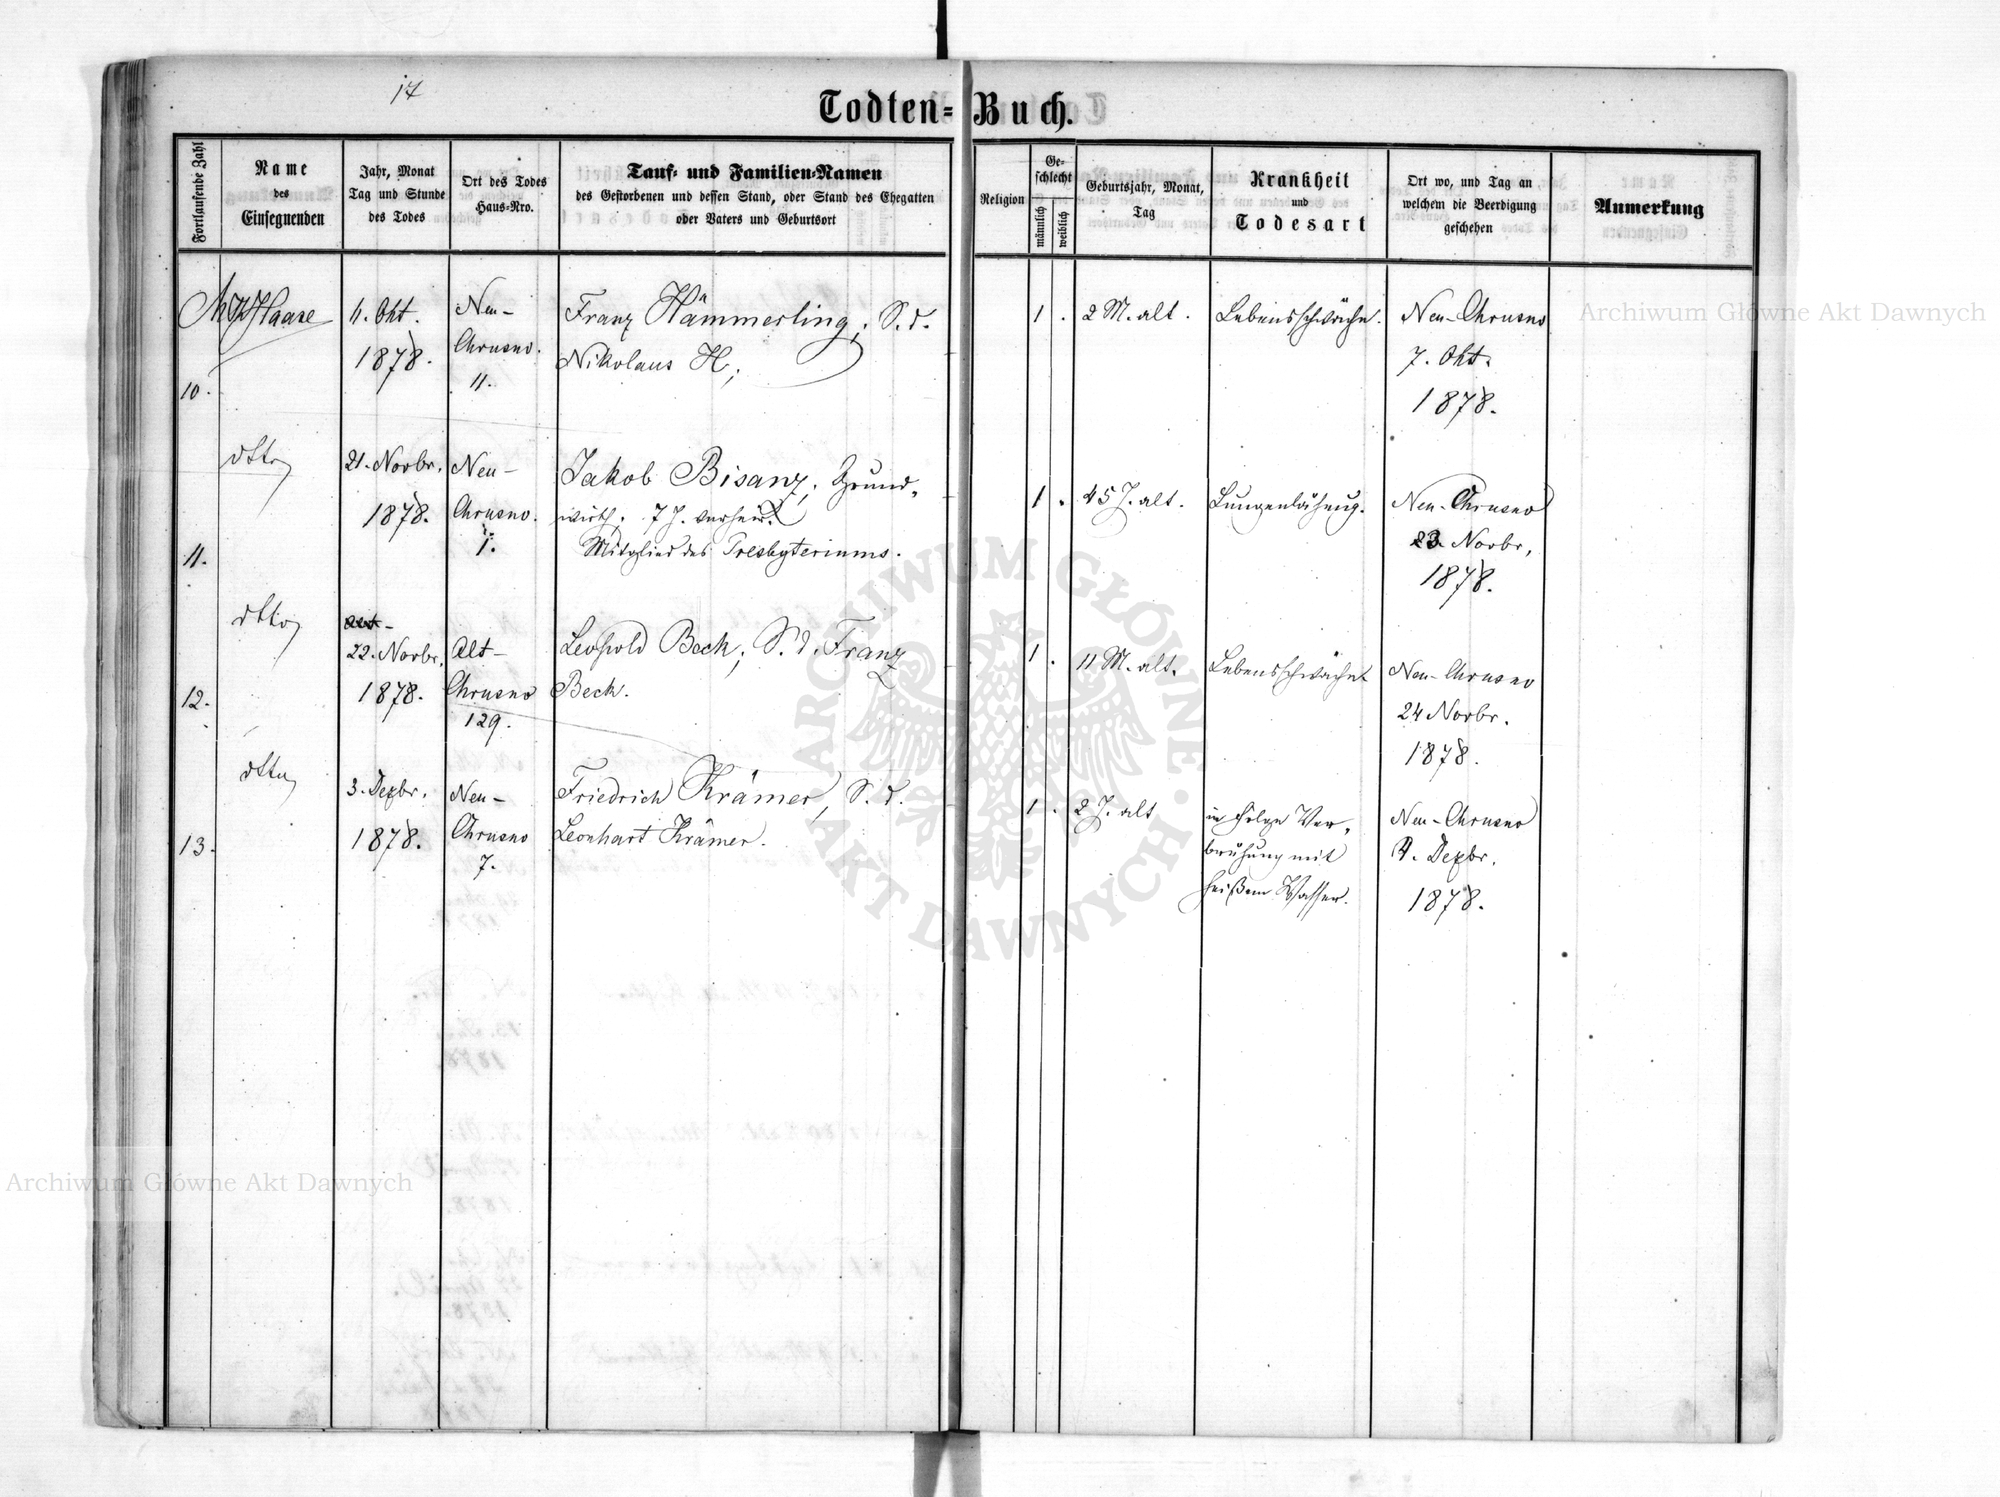 17
Todten-Buch.
Fortlaufende Zahl
Name
des
Einsegnenden
Jahr, Monat
Tag und Stunde
des Todes
Ort des Todes
Haus-Nro.
Tauf- und Familien-Namen
des Gestorbenen und dessen Stand, oder Stand des Ehegatten
oder Vaters und Geburtsort
Religion
Ge-
schlecht
männlich
weiblich
Geburtsjahr, Monat,
Tag
Krankheit
und
Todesart
Ort wo, und Tag an
welchem die Beerdigung
geschehen
Anmerkung
10.
Haase
Okt.
1878.
Neu-
Chrusno.
11.
Franz Hämmerling, S. d.
Nikolaus H,
1 .
2 M. alt.
Lebensschwäche.
Neu-Chrusno
7. Okt.
1878.
11.
dtto
21. Novbr.
1878.
Neu-
Chrusno.
1.
Jakob Bisanz, Grund-
wirth, 7 J. verheir.
Mitglied des Presbyteriums.
1 .
45 J. alt.
Lungenlähmug.
Neu-Chrusno
23. Novbr.
1878.
12.
dtto
22. Novbr.
1878.
Alt-
Chrusno
129.
Leopold Beck, S. d. Franz
Beck.
1 .
11 M. alt.
Lebensschwäche
Neu-Chrusno
24 Novbr.
1878.
13.
dtto
3. Dezbr.
1878.
Neu-
Chrusno
7.
Friedrich Krämer, S. d.
Leonhart Krämer.
1 .
2 J. alt
in Folge Ver-
brühung mit
heißem Wasser.
Neu-Chrusno
Dezbr.
1878.
Archiwum Główne Akt Dawnych
ARCHIWUM GŁÓWNE AKT DAWNYCH
Archiwum Główne Akt Dawnych